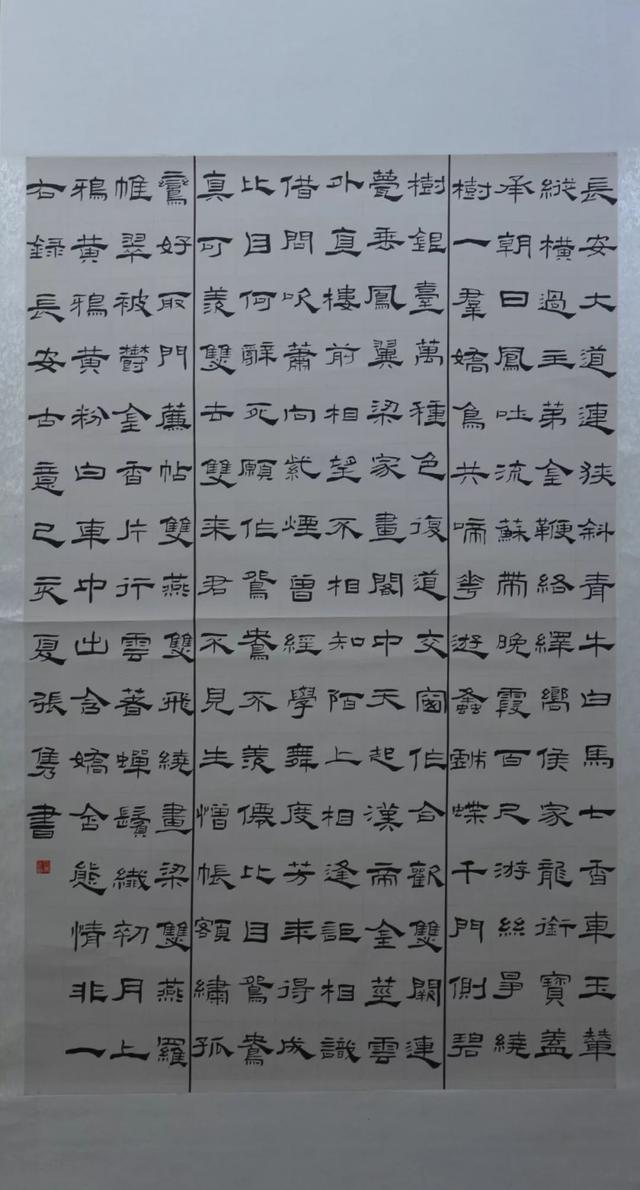 長安大道連狹斜青牛白馬七香車玉輦
縱橫過主弟金鞭絡繹嚮侯家龍銜寶蓋
承朝日鳳吐流蘇帶晚霞百尺游絲爭繞
樹一羣嬌鳥共啼花遊蜂戲蝶千門側碧
樹銀臺萬種色復道交窗作合歡雙闕連
甍垂鳳翼梁家畫閣中天起漢帝金莖雲
外直樓前相望不相知陌上相逢詎相識
借問吹簫向紫煙曾經學舞度芳年得成
比目何辭死願作鴛鴦不羨僊比目鴛鴦
真可羨雙去雙來君不見生憎帳額繡孤
鸞好取門簾帖雙燕雙飛繞畫梁雙燕羅
帷翠被鬱金香片行雲著蟬鬢纖初月上
鴉黃鴉黃粉白車中出含嬌含態情非一
右錄長安古意己亥夏張雋書